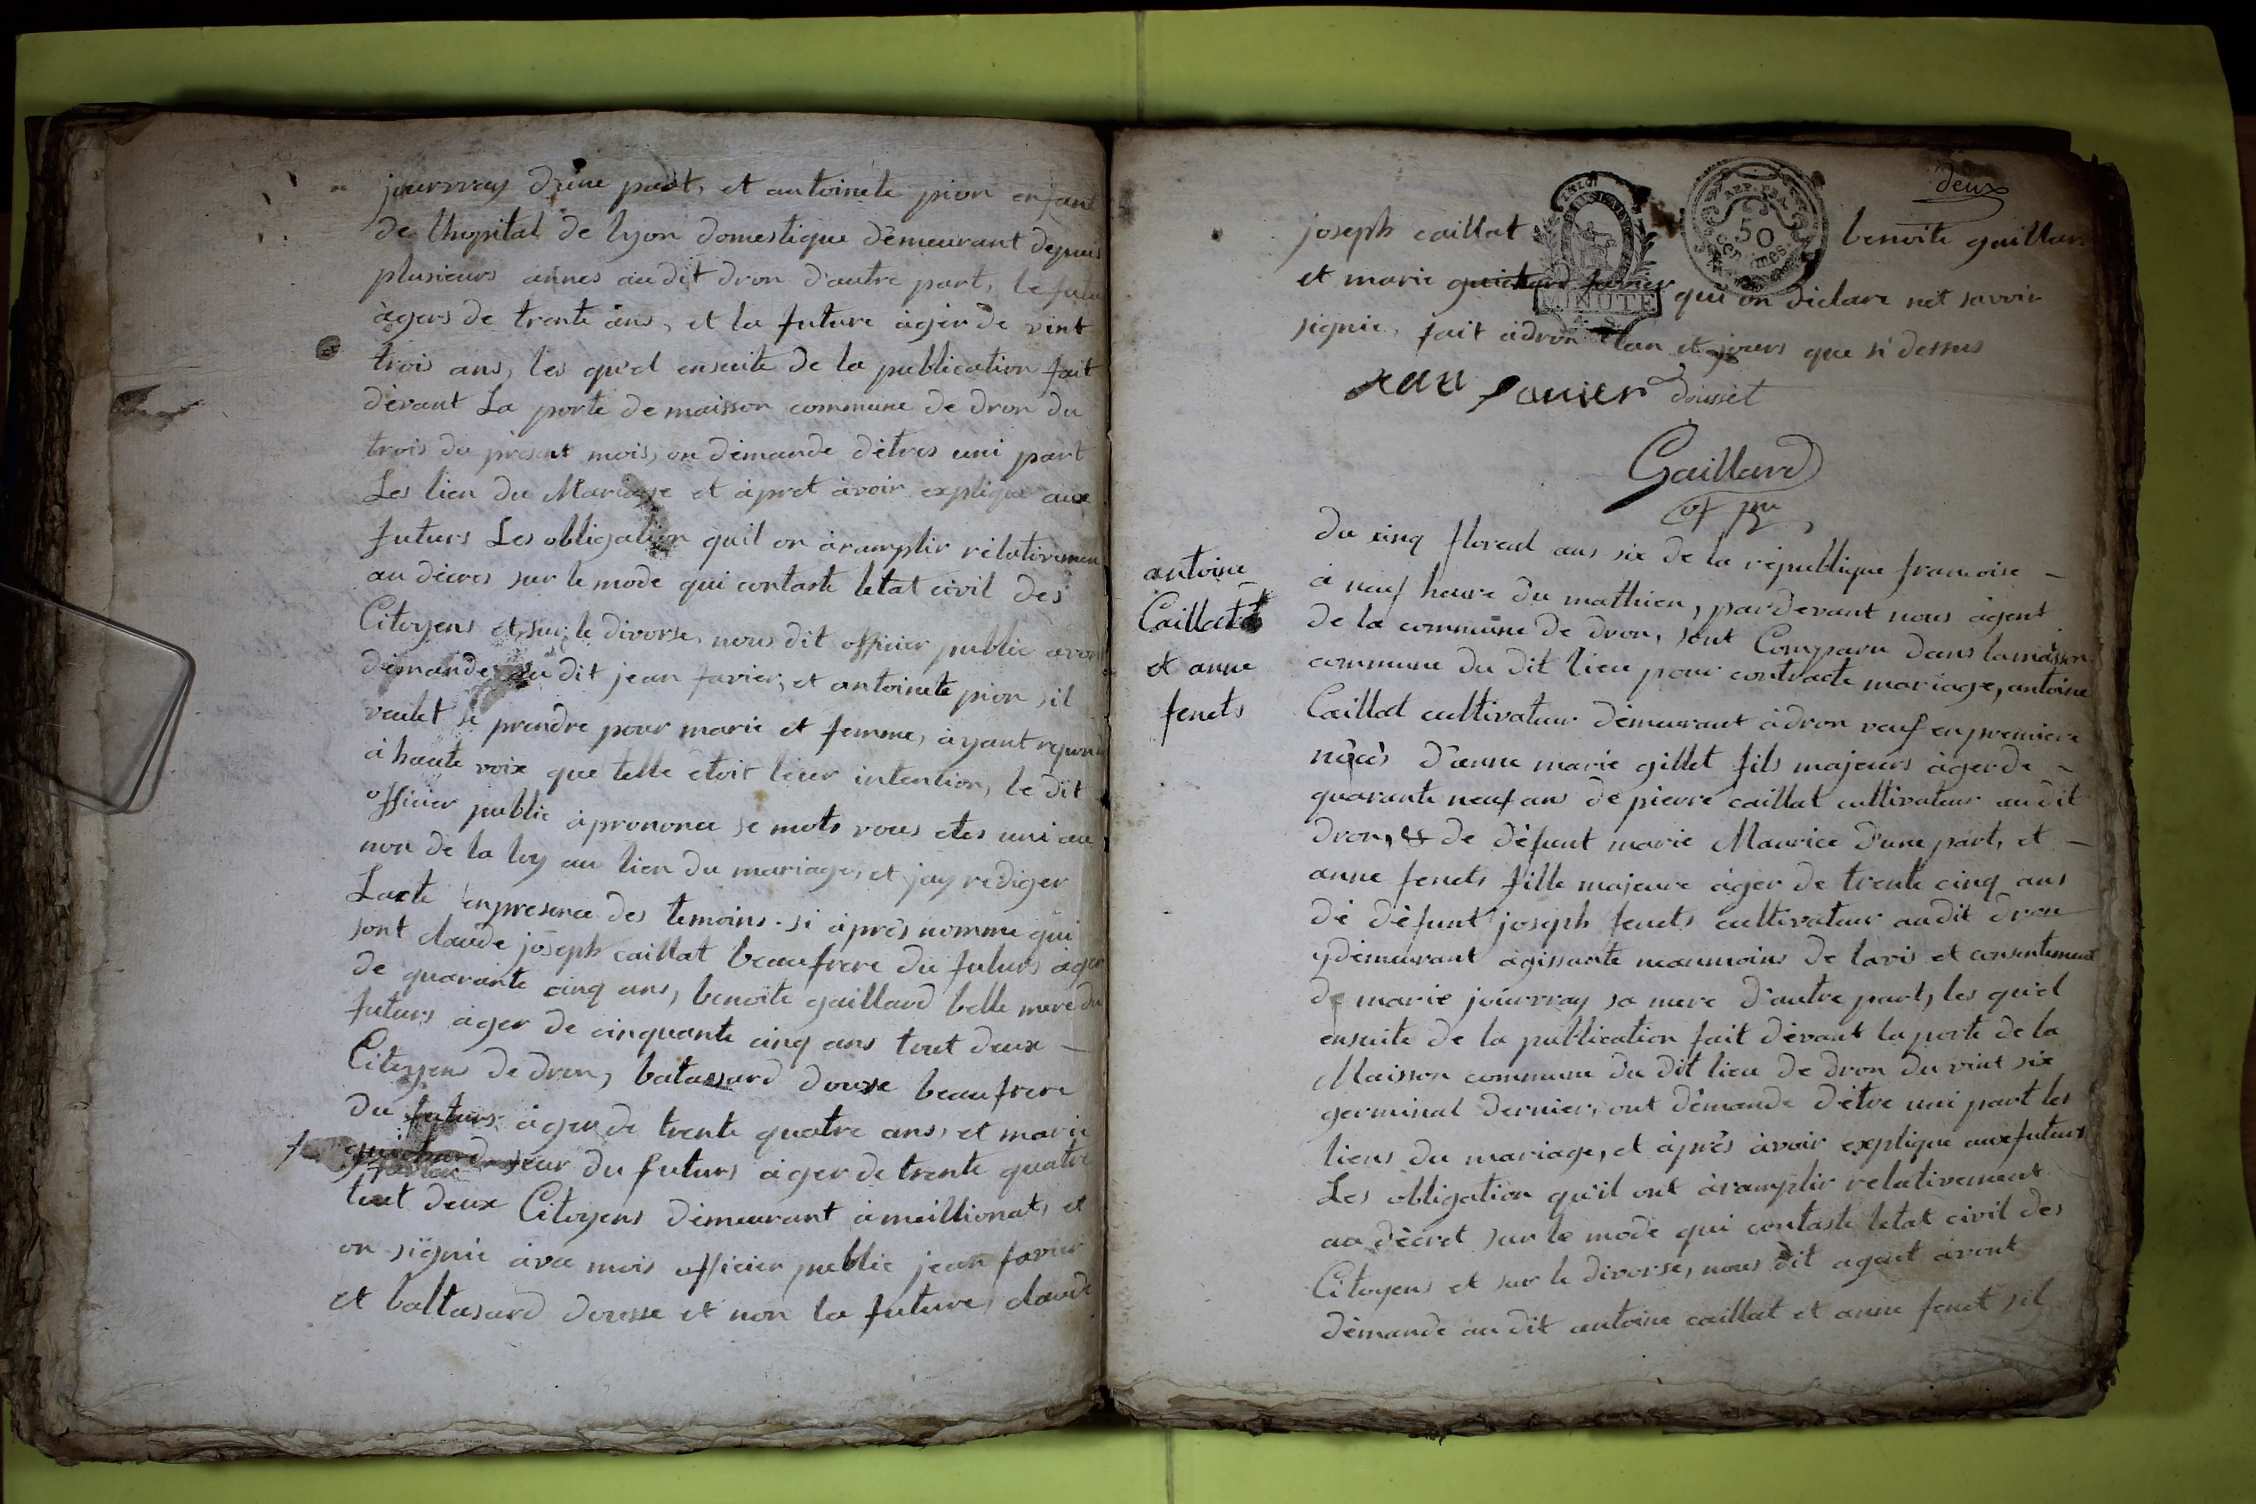 jourrray d'une part, et antoinete pion enfant
de lhopital de lyon domestique démeurant depuis
plusieurs annes audit dron d'autre part, le futu
àgers de trente ans, et la future àger de vint
trois ans, les qu'el ensuite de la publication fait
dévant La porte de maisson commune de dron du
trois du présent mois, on démande détres uni part
Les lien du Mariage et àpret àvoir explique aux
futurs Les obligation quil on àramplir rélativemen
au décres sur le mode qui contaste letat civil des
Citoyens et sur le divorse, nous dit officier public avon
démande au dit jean favier, et antoinete pion sil
veulet se prendre pour marie et femme, àyant repon
à haute voix que telle étoit leur intention, le dit
officier public àprononce se mots vous etes uni au
non de la loy au lien du mariage, et jay rédiger
Lacte enpresence des temoins si àprés nomme qui
sont claude joseph caillat beaufrere du futurs àger
de quarante cinq ans, benoite gaillard belle mere du
futurs àger de cinquante cinq ans tout deux
Citoyens de dron, batassard dousse beaufrere
du futurs àger de trente quatre ans, et marie
guichard seur du futurs àger de trente quatre
favier
tout deux Citoyens démeurant àmeillionat, et
on signie àvec mois officier public jean favier
et baltasard dousse et non la future, claude
deux
INECI
REP. FRA
50
centimes
MINUTE
joseph caillat benoite gaillard
et marie guichard favier qui on déclare net savoir
signie, fait àdron lan et jours que si dessus
jean favier dousset
Gaillard
of pu
antoine
Caillat
et anne
fenets
du cinq floreal ans six de la république francoise
à neuf heure du mathien, pardevant nous àgent
de la commune de dron, sont Comparu dans lamaisson
commune du dit lieu pour contracte mariage, antoine
Caillat cultivateur démeurant àdron veuf enpremiere
nôces d'anne marie gillet fils majeurs àger de
quarante neuf ans de pierre caillat cultivateur audit
dron, & de défunt marie Maurice d'une part, et
anne fenets fille majeure àger de trente cinq ans
dé défunt joseph fenets cultivateur audit dron
ydémeurant àgissante neaumoins de lavis et consentement
de marie jourrray sa mere d'autre part, les qu'el
ensuite de la publication fait dévant la porte de la
Maisson commune du dit lieu de dron du vint six
germinal dernier, ont démande détre uni part les
liens du mariage, et àprés àvoir explique auxfuturs
Les obligation qu'il ont àramplir relativement
au décret sur le mode qui contaste letat civil des
Citoyens et sur le divorse, nous dit agent àvont
démande au dit antoine caillat et anne fenet sil